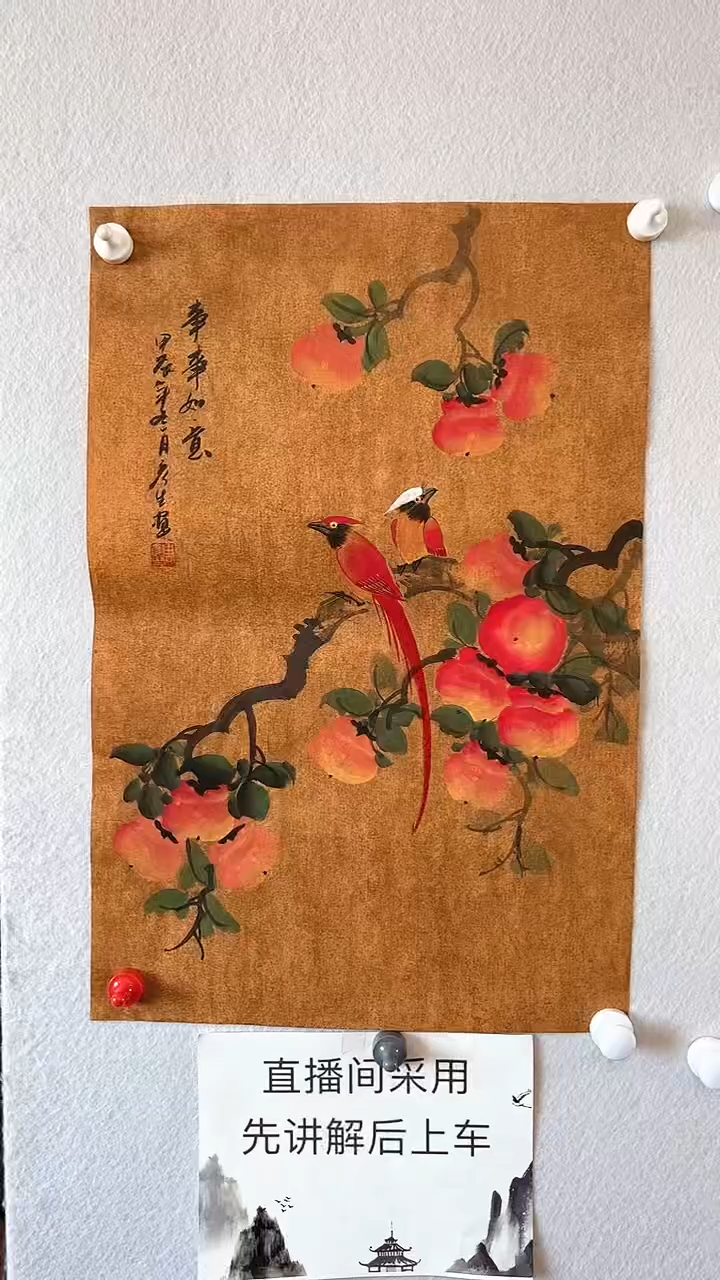 事事如意
甲辰年冬月彦生画
直播间采用
先讲解后上车